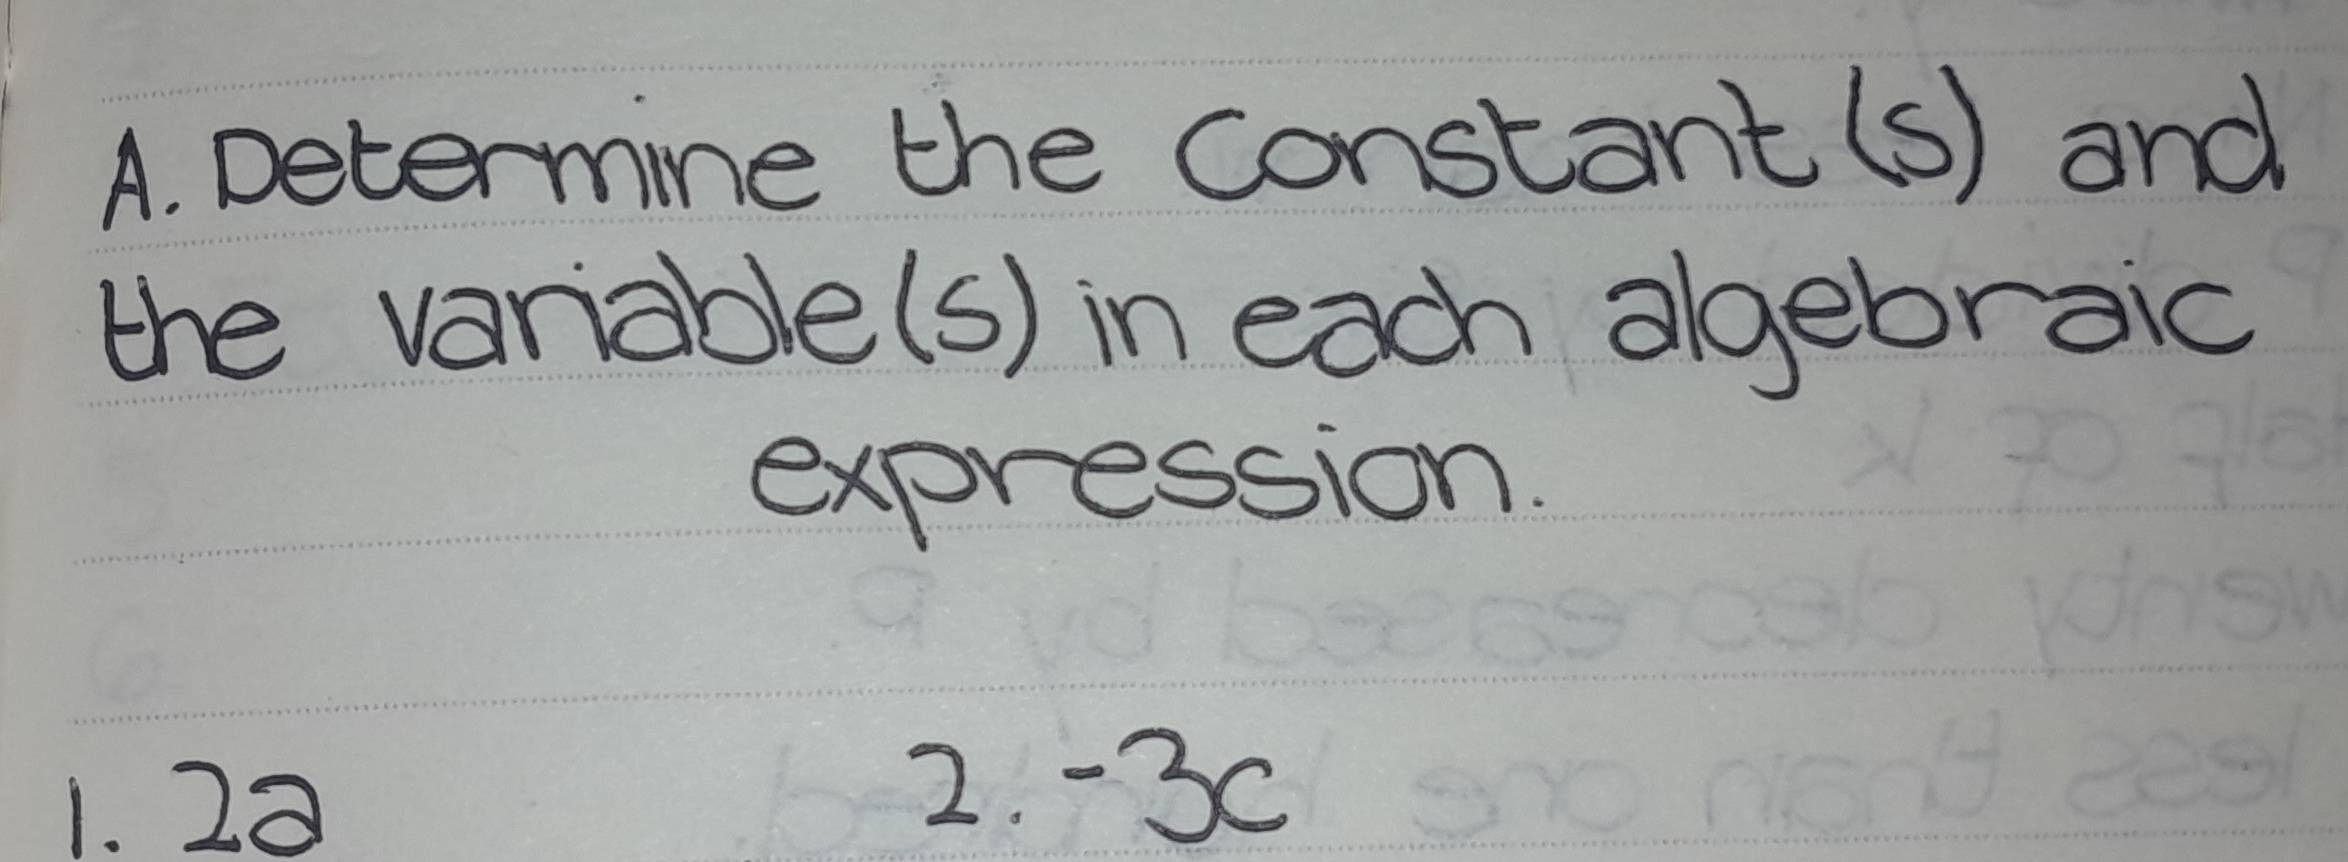 A. Determine the constant(s) and
the variable(s) in each algebraic
expression.
1. 2a 2. -3c